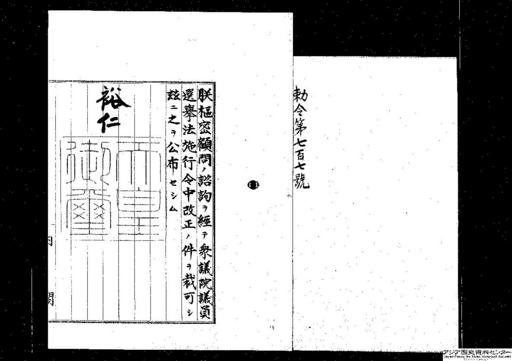 勅令第七百七號
朕樞密顧問ノ諮詢ヲ經テ衆議院議員
選擧法施行令中改正ノ件ヲ裁可シ
玆ニ之ヲ公布セシム
裕仁
天皇
御璽
内閣
アジア歴史資料センター